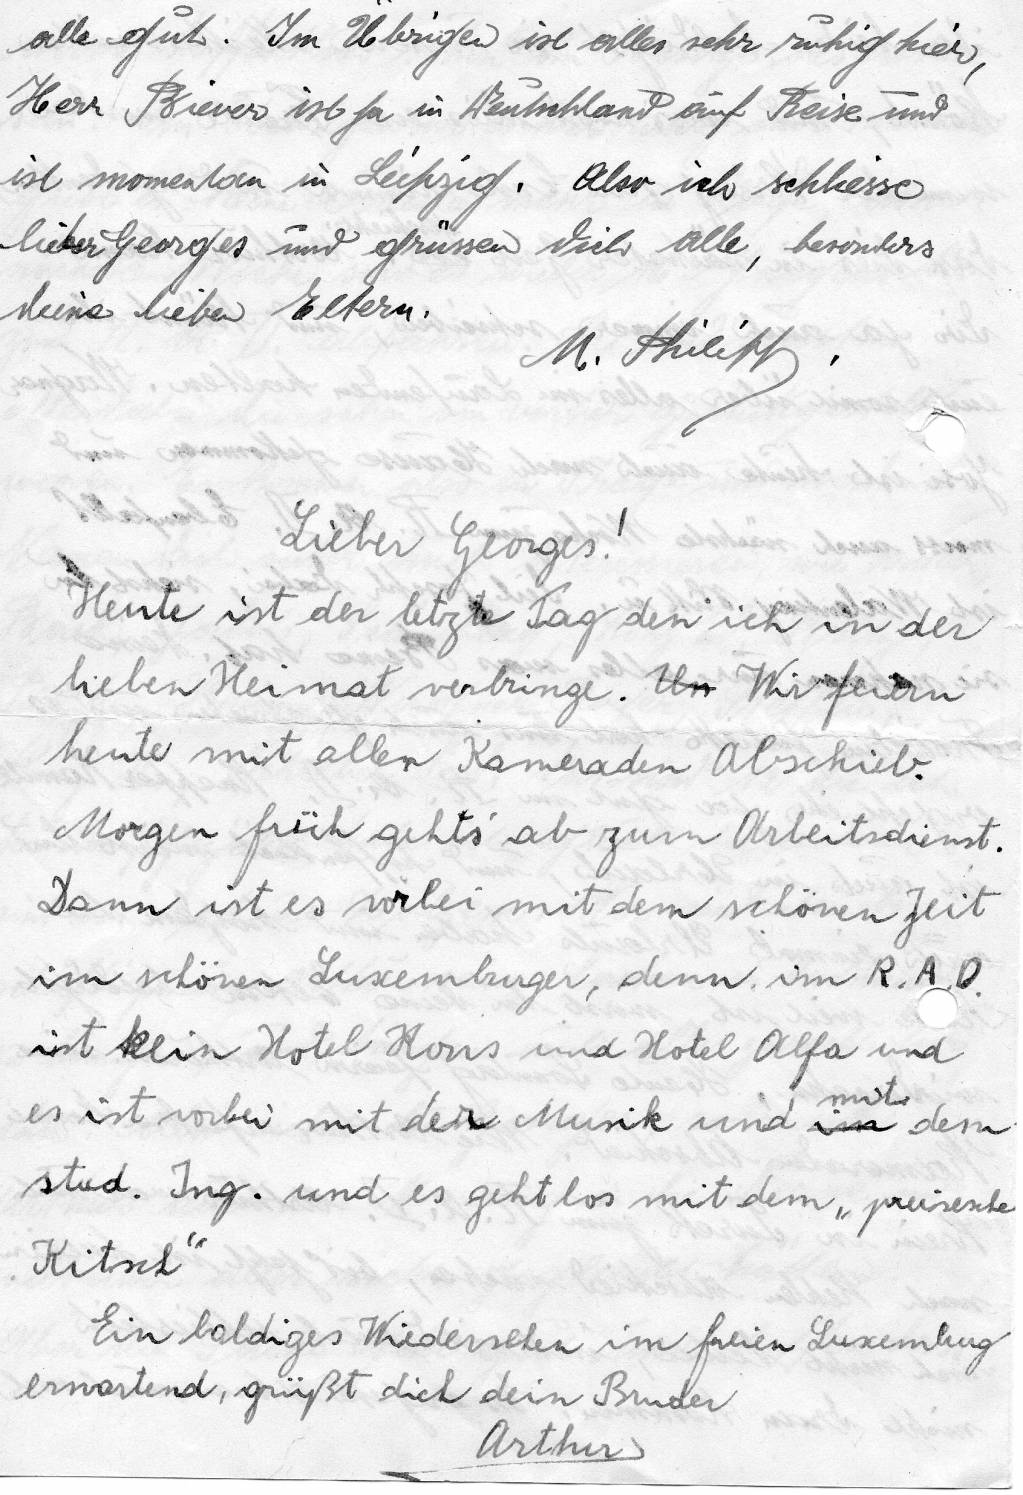 alle gut. Im Übrigen ist alles sehr ruhig hier,
Herr Biever ist ja in Deutschland auf Reise und
ist momentan in Leipzig. Also ich schliesse
lieber Georges und grüssen dich alle, besonders
deine lieben Eltern.
M. Philipp.
Lieber Georges!
Heute ist der letzte Tag den ich in der
lieben Heimat verbringe. Un Wir feiern
heute mit allen Kameraden Abschieb.
Morgen früh geht's ab zum Arbeitsdienst.
Dann ist es vorbei mit dem schönen Zeit
im schönen Luxemburger, denn im R.A.D.
ist kein Hotel Kons und Hotel Alfa und
es ist vorbei mit der Musik und mit dem
stud. Ing. und es geht los mit dem „preisesche
Kitsch“
Ein baldiges Wiedersehen im freien Luxemburg
erwartend, grüßt dich dein Bruder
Arthur